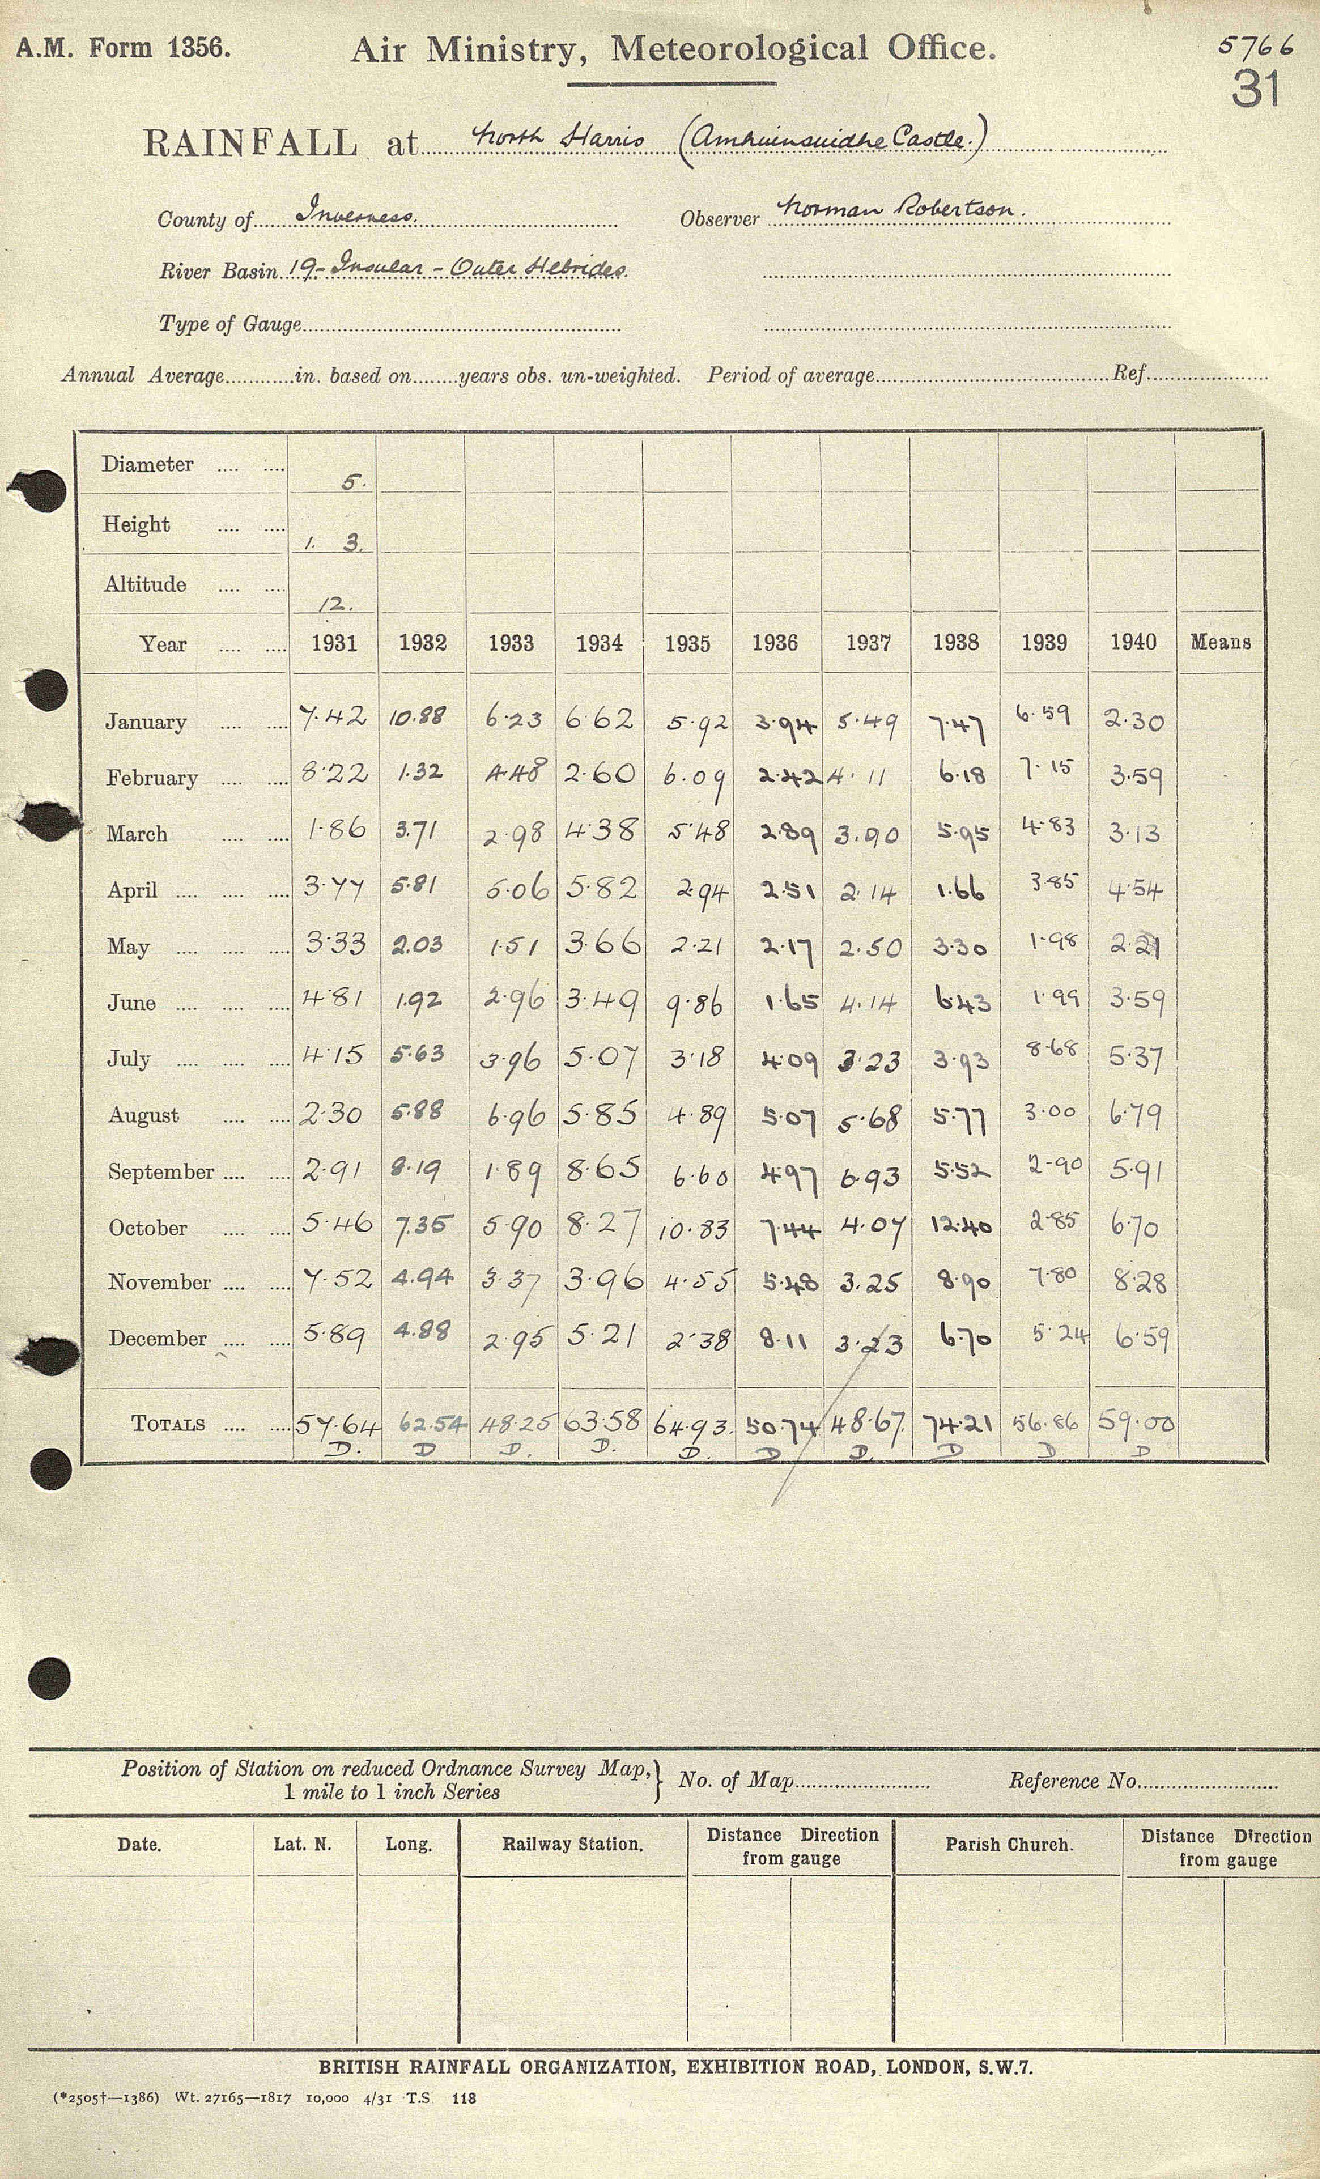 A.M. Form 1356. Air Ministry, Meteorological Office. 5766
31
RAINFALL at North Harris (Amhuinsuidhe Castle.)
County of Inverness. Observer Norman Robertson.
River Basin 19 - Insular - Outer Hebrides.
Type of Gauge
Annual Average in. based on years obs. un-weighted. Period of average Ref.
Diameter 5.
Height 1. 3.
Altitude 12.
Year 1931 1932 1933 1934 1935 1936 1937 1938 1939 1940 Means
January 7.42 10.88 6.23 6.62 5.92 3.94 5.49 7.47 6.59 2.30
February 8.22 1.32 4.48 2.60 6.09 2.42 4.11 6.18 7.15 3.59
March 1.86 3.71 2.98 4.38 5.48 2.89 3.90 5.95 4.83 3.13
April 3.77 5.81 5.06 5.82 2.94 2.51 2.14 1.66 3.85 4.54
May 3.33 2.03 1.51 3.66 2.21 2.17 2.50 3.30 1.98 2.21
June 4.81 1.92 2.96 3.49 9.86 1.65 4.14 6.43 1.99 3.59
July 4.15 5.63 3.96 5.07 3.18 4.09 3.23 3.93 8.68 5.37
August 2.30 5.88 6.96 5.85 4.89 5.07 5.68 5.77 3.00 6.79
September 2.91 8.19 1.89 8.65 6.60 4.97 6.93 5.52 2.90 5.91
October 5.46 7.35 5.90 8.27 10.83 7.44 4.07 12.40 2.85 6.70
November 7.52 4.94 3.37 3.96 4.55 5.48 3.25 8.90 7.80 8.28
December 5.89 4.88 2.95 5.21 2.38 8.11 3.23 6.70 5.24 6.59
TOTALS 57.64 62.54 48.25 63.58 64.93 50.74 48.67 74.21 56.86 59.00
D. D D. D. D. D D. D D D
Position of Station on reduced Ordnance Survey Map, } No. of Map Reference No.
1 mile to 1 inch Series
Date. Lat. N. Long. Railway Station. Distance Direction Parish Church. Distance Direction
from gauge from gauge
BRITISH RAINFALL ORGANIZATION, EXHIBITION ROAD, LONDON, S.W.7.
(*2505†—1386) Wt. 27165—1817 10,000 4/31 T.S. 118